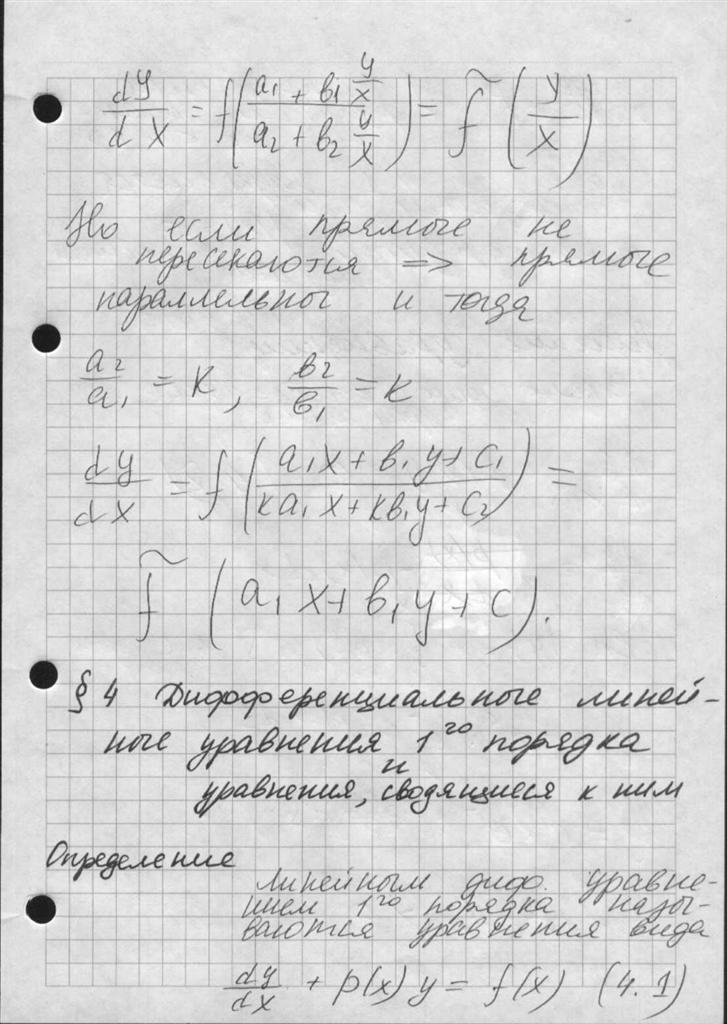 dy/dx = f((a₁ + b₁ y/x)/(a₂ + b₂ y/x)) = f̃(y/x)
Но если прямые не
пересекаются => прямые
параллельны и тогда
a₂/a₁ = k, b₂/b₁ = k
dy/dx = f((a₁x + b₁y + c₁)/(ka₁x + kb₁y + c₂)) =
f̃(a₁x + b₁y + c).
§ 4 Дифференциальные линей-
ные уравнения 1го порядка
и
уравнения, сводящиеся к ним
Определение
Линейным диф. уравне-
нием 1го порядка назы-
ваются уравнения вида
dy/dx + p(x)y = f(x) (4.1)